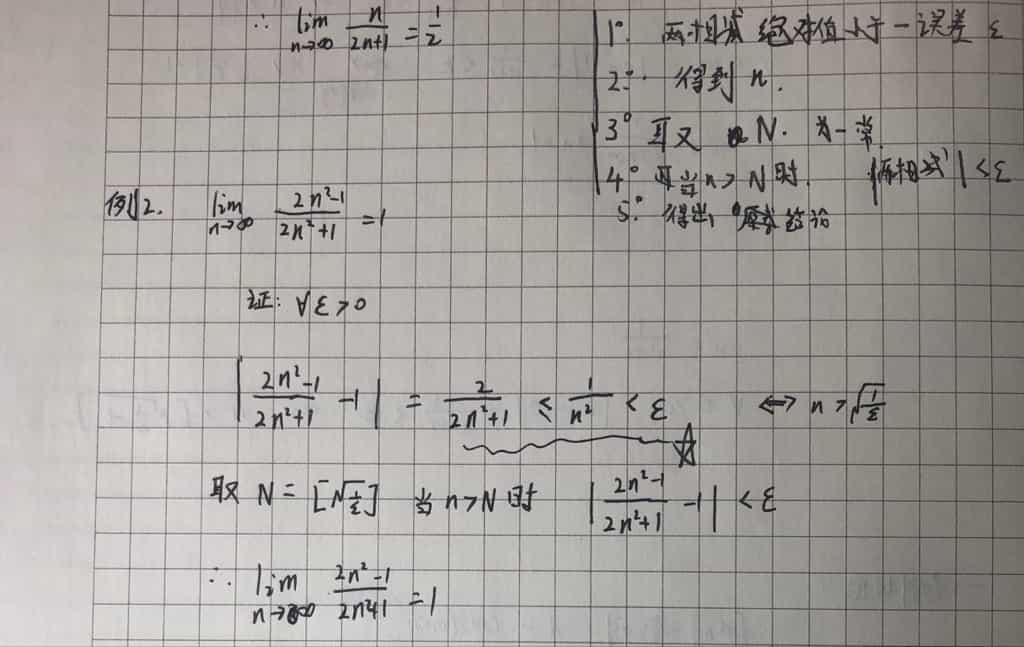 ∴ lim n→∞ n/(2n+1) = 1/2
1° 两相减 绝对值小于一误差 ε
2° 得到 n.
3° 取 N. 为一常
4° 当 n > N 时. |原相式| < ε
5° 得出 原式结论
例2. lim n→∞ (2n²-1)/(2n²+1) = 1
证: ∀ε>0
|(2n²-1)/(2n²+1) - 1| = 2/(2n²+1) ≤ 1/n² < ε ⟺ n > √(1/ε)
取 N = [√(1/ε)] 当 n>N 时 |(2n²-1)/(2n²+1) - 1| < ε
∴ lim n→∞ (2n²-1)/(2n²+1) = 1